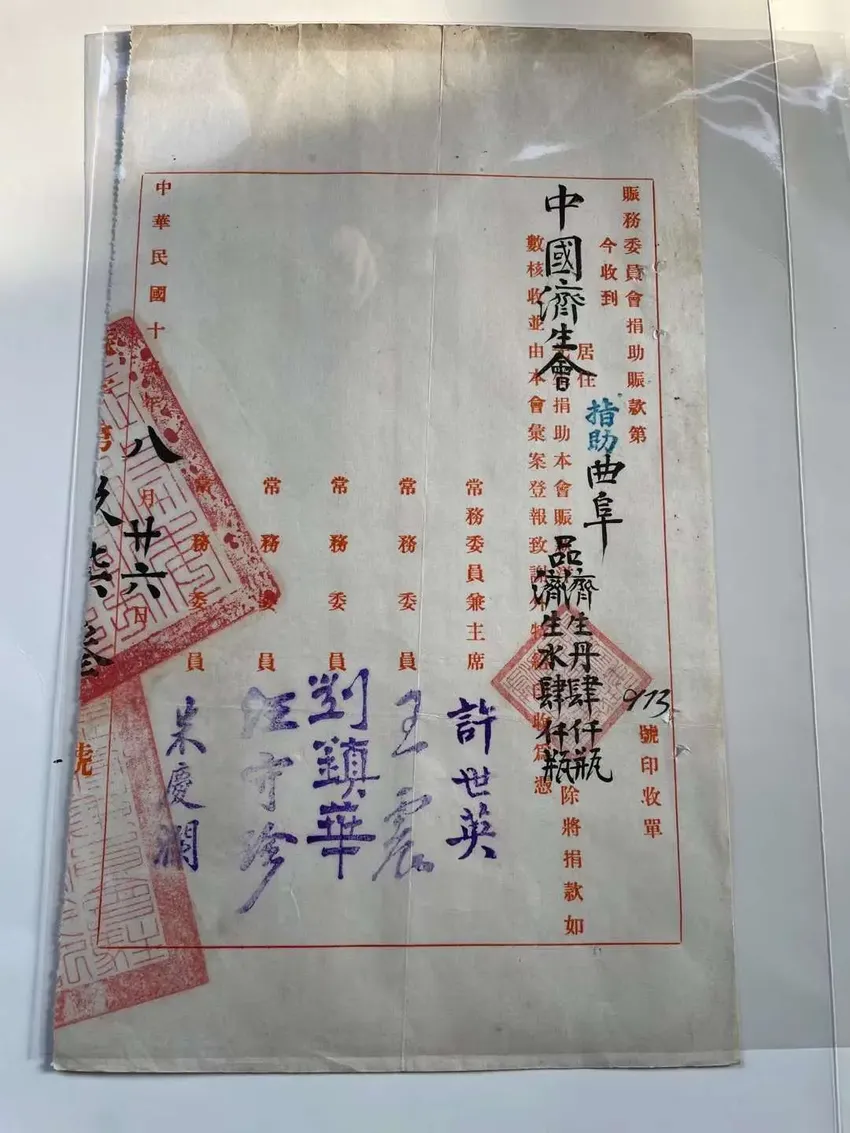 賑務委員會捐助賑款第973號印收單
今收到
中國濟生會
居住
指助曲阜
濟生丹肆仟瓶
濟生水肆仟瓶
捐助本會賑
除將捐款如
數核收並由本會彙案登報致謝外特給
收為憑
常務委員兼主席許世英
常務委員王震
常務委員劉鎮華
常務委員汪守珍
常務委員朱慶瀾
中華民國十 年八月廿六日
號